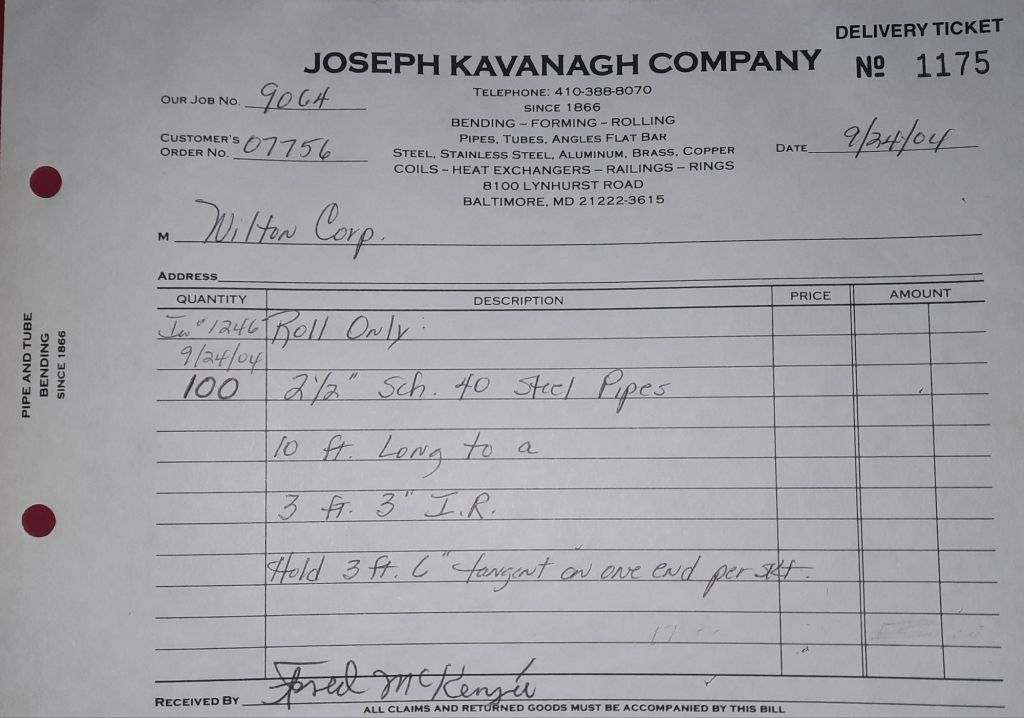 DELIVERY TICKET
JOSEPH KAVANAGH COMPANY
Nº 1175
TELEPHONE: 410-388-8070
SINCE 1866
BENDING – FORMING – ROLLING
PIPES, TUBES, ANGLES FLAT BAR
STEEL, STAINLESS STEEL, ALUMINUM, BRASS, COPPER
COILS – HEAT EXCHANGERS – RAILINGS – RINGS
8100 LYNHURST ROAD
BALTIMORE, MD 21222-3615
OUR JOB NO. 9064
CUSTOMER'S ORDER NO. 07756
DATE 9/24/04
M Wilton Corp.
ADDRESS
QUANTITY DESCRIPTION PRICE AMOUNT
Inv # 1246 Roll Only:
9/24/04
100 2½" Sch. 40 Steel Pipes
10 ft. Long to a
3 ft. 3" I.R.
Hold 3 ft. 6" tangent on one end per skt.
RECEIVED BY Fred McKenzie
ALL CLAIMS AND RETURNED GOODS MUST BE ACCOMPANIED BY THIS BILL
PIPE AND TUBE
BENDING
SINCE 1866